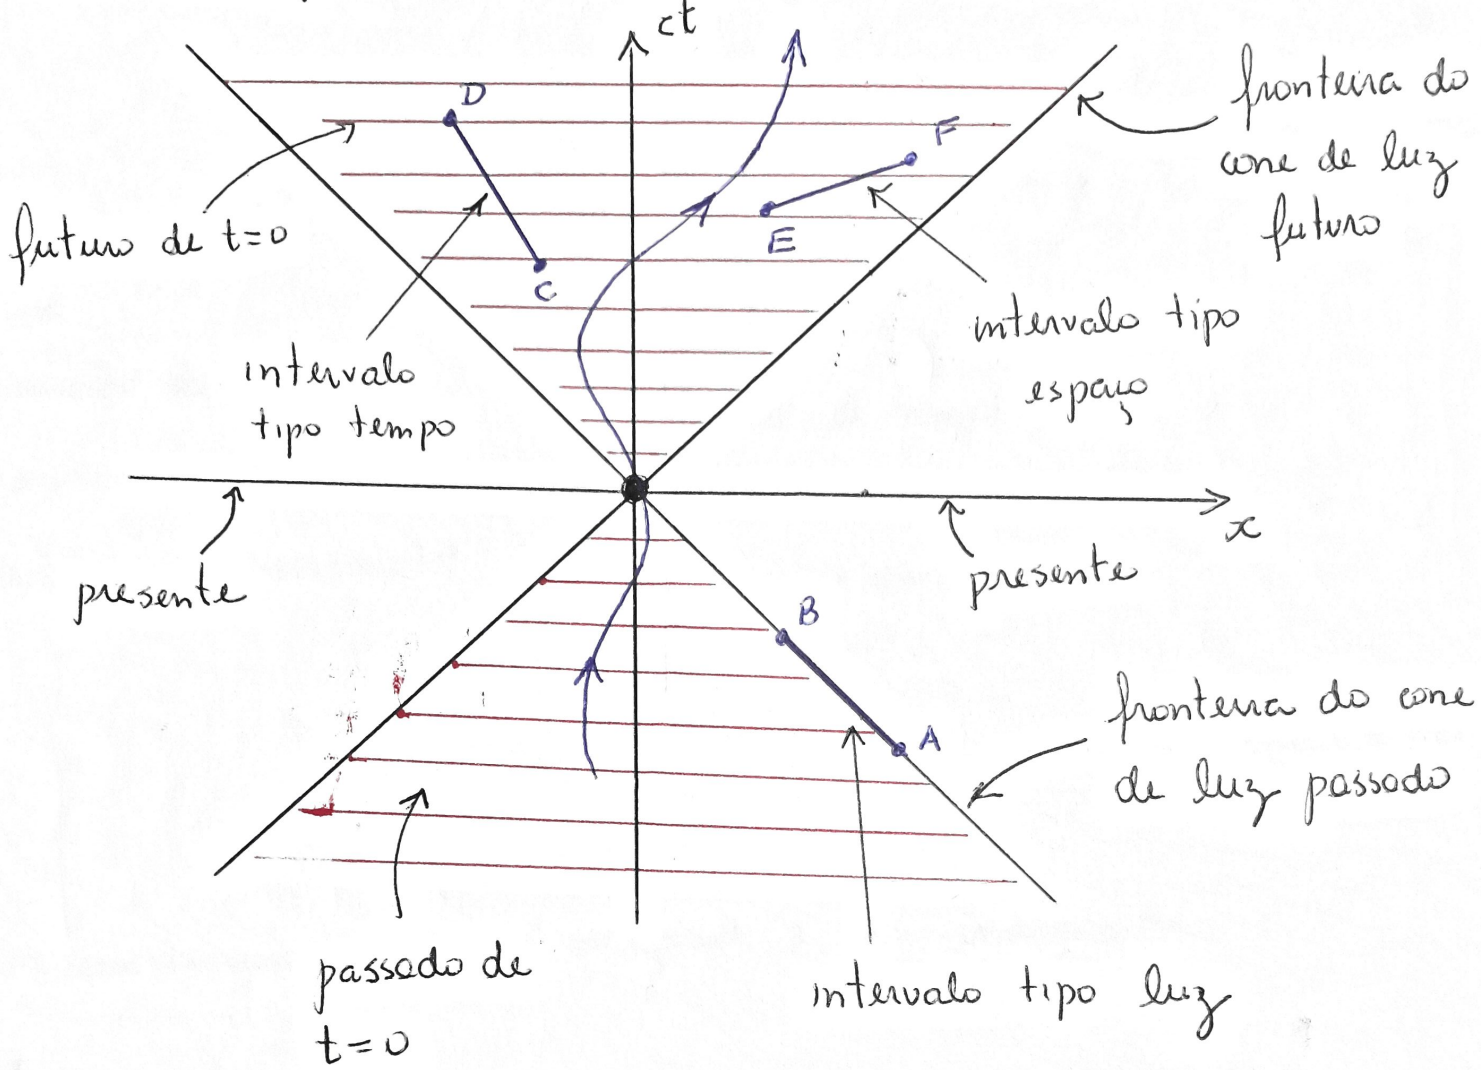 ct
D
F
E
C
fronteira do
cone de luz
futuro
futuro de t=0
intervalo
tipo tempo
intervalo tipo
espaço
x
presente
presente
B
A
fronteira do cone
de luz passado
passado de
t=0
intervalo tipo luz